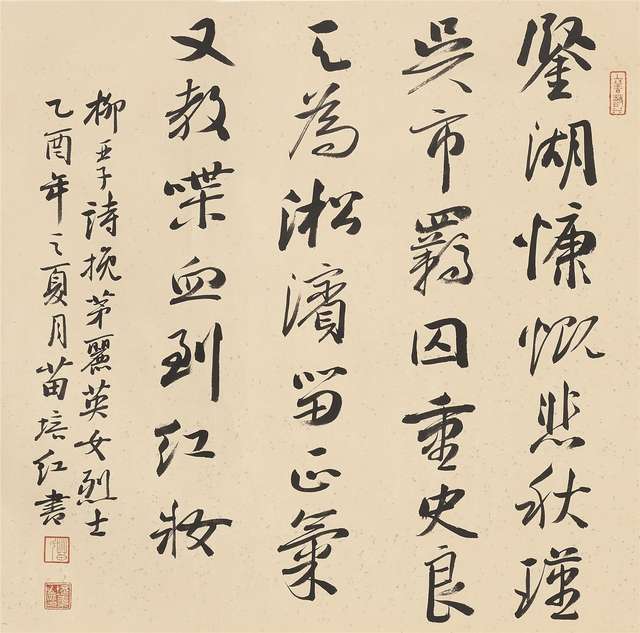 鑒湖慷慨悲秋瑾
吳市羈囚重史良
又為淞濱留正氣
又教喋血到紅妝
柳亞子詩挽茅麗英女烈士
乙酉年之夏月苗培紅書